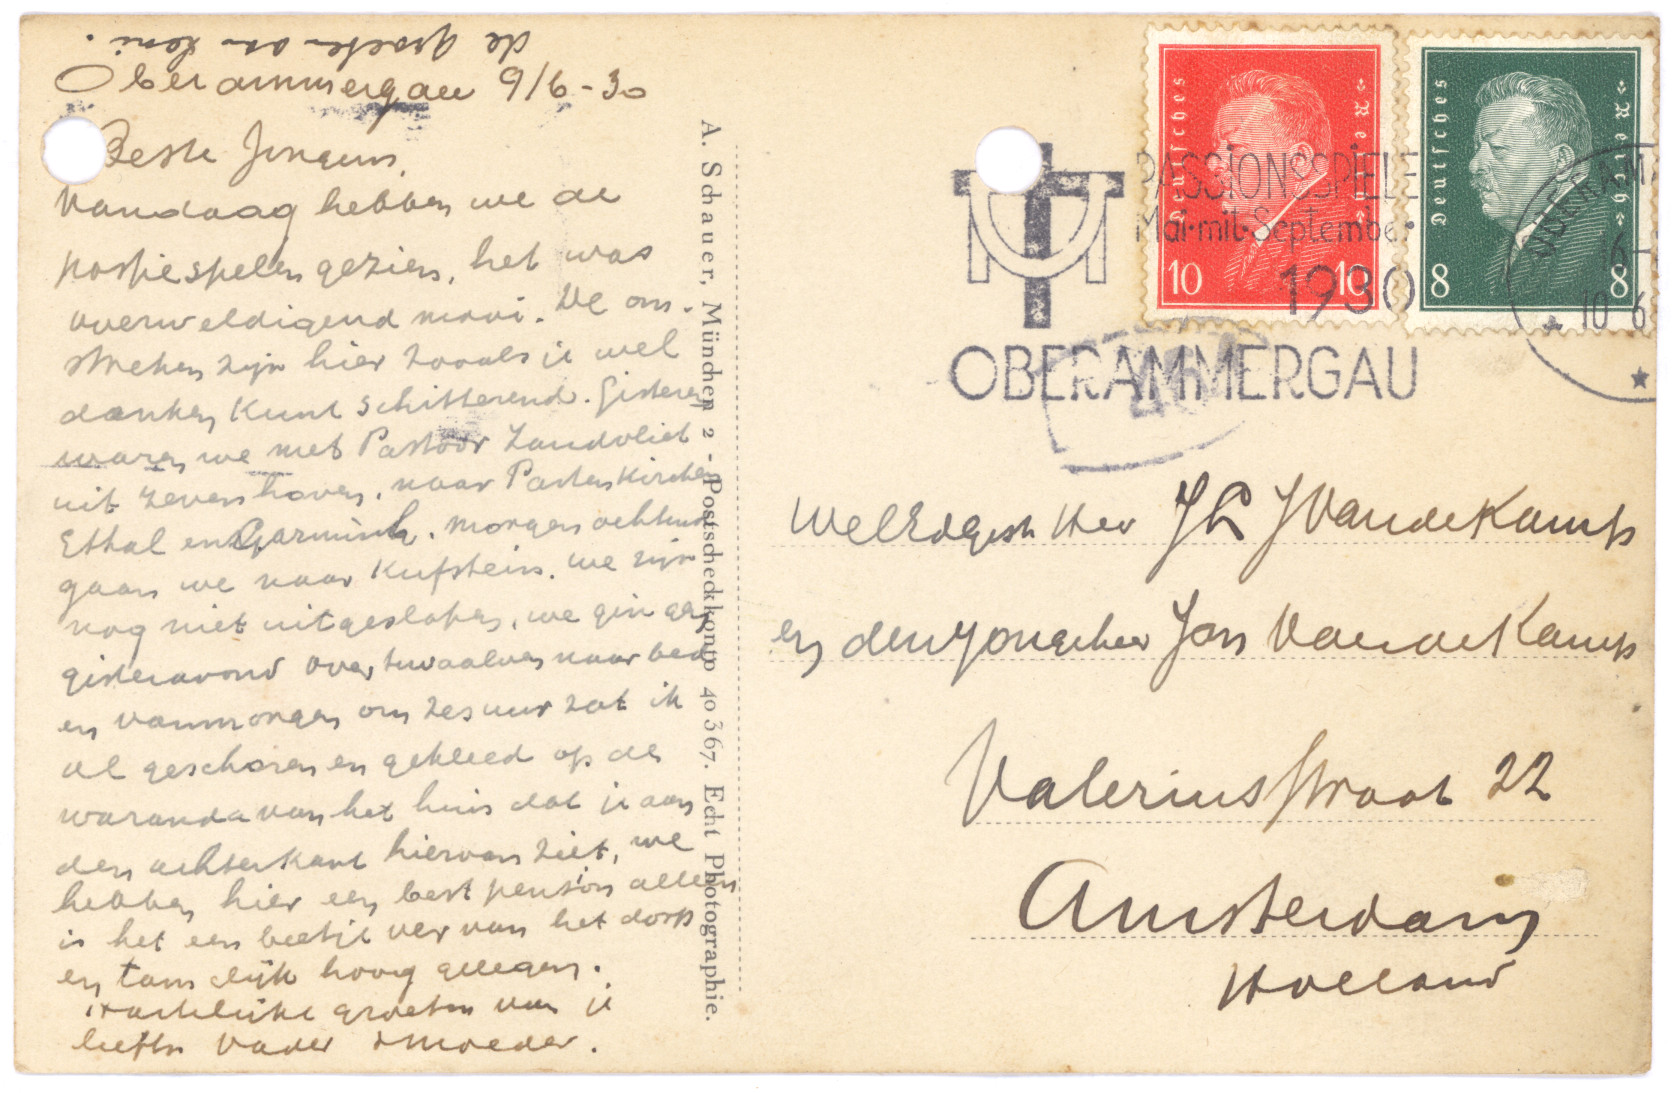 de groeten aan Leni.
Oberammergau 9/6-30
Beste Jongens,
Vandaag hebben we de
passiespelen gezien, het was
overweldigend mooi. De om-
streken zijn hier zooals je wel
denken kunt schitterend. Gisteren
waren we met Pastoor Zandvliet
uit Zevenhoven, naar Partenkirchen
Ethal en Garmisch. morgen ochtend
gaan we naar Kufstein. we zijn
nog niet uitgeslapen, we gingen
gisteravond over twaalven naar bed
en vanmorgen om zes uur zat ik
al geschoren en gekleed op de
waranda van het huis dat je aan
den achterkant hiervan ziet, we
hebben hier een best pension alleen
is het een beetje ver van het dorp
en tamelijk hoog gelegen.
Hartelijke groeten van je
liefh Vader & Moeder.
A. Schauer, München 2 - Postscheckkonto 40 367. Echt Photographie.
PASSIONSSPIELE
Mai·mit·September
1930
OBERAMMERGAU
Deutsches Reich
10 10
Deutsches Reich
8 8
OBERAMM
16-
10 6
WelEdgesh Heer J Vande Kamp
en den Jongeheer Jan Vande Kamp
Valeriusstraat 22
Amsterdam
Holland